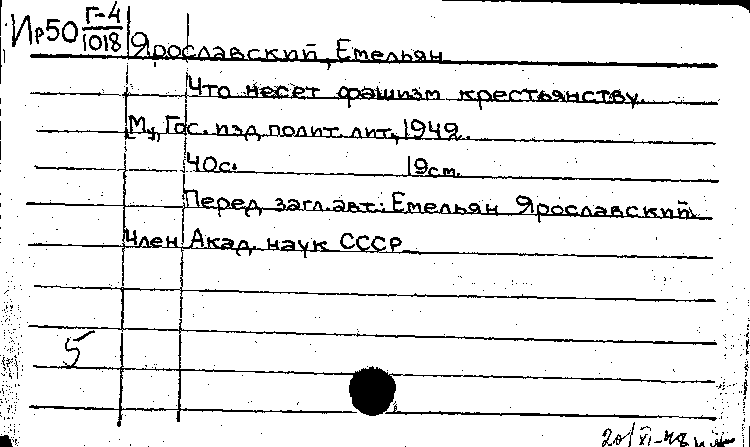 Ир50 Г-4/1018
Ярославский, Емельян
Что несет фашизм крестьянству.
М., Гос. изд. полит. лит., 1949.
40с. 19см.
Перед загл. авт.: Емельян Ярославский
Член Акад. наук СССР
5
20/XI-48